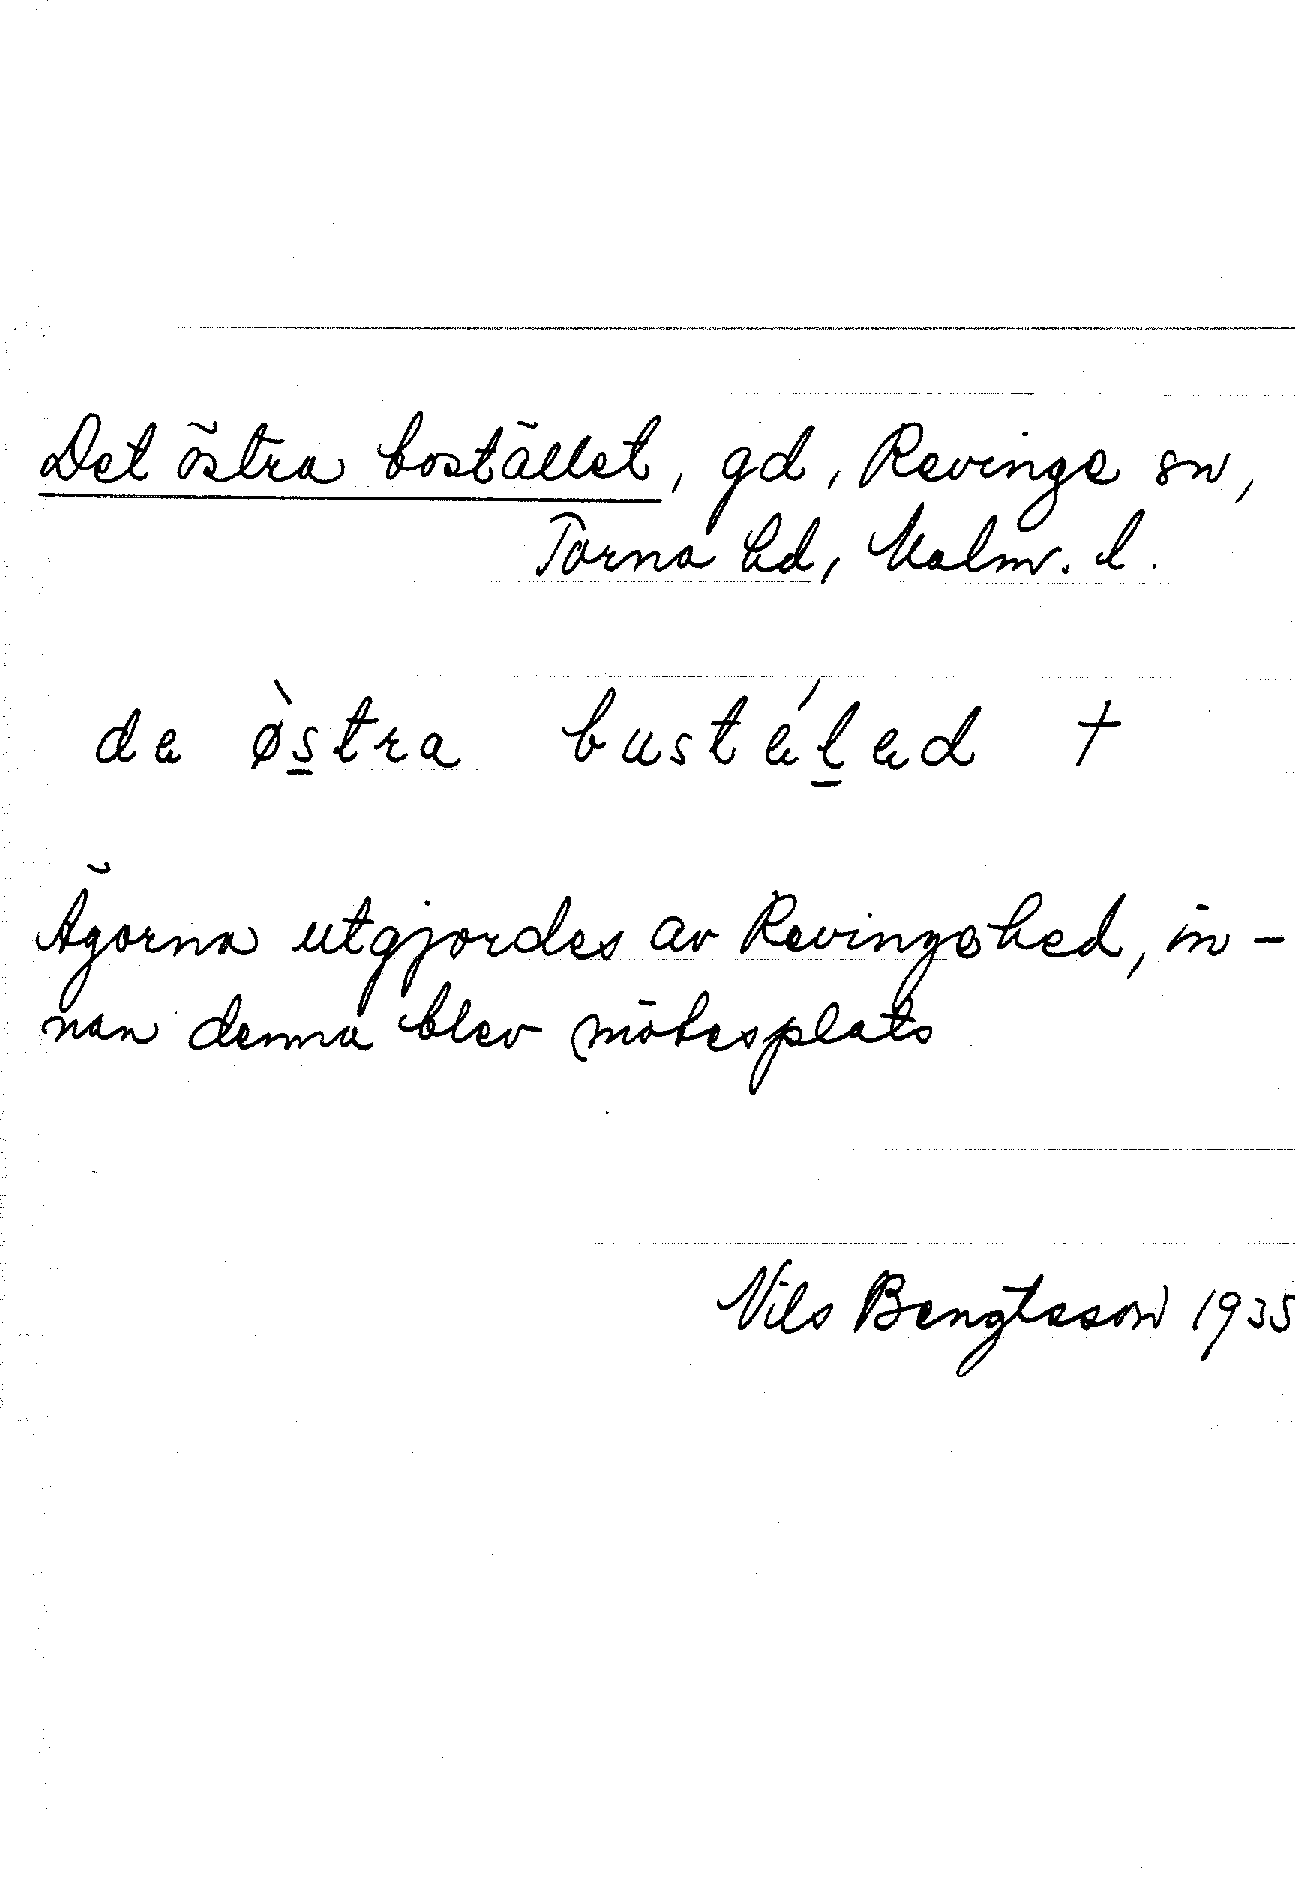 Det östra bostället, gd, Revinge sn,
Torna hd, Malm. l.
de ø̀s̲tra bustǽl̲æd †
Ägorna utgjordes av Revingehed, in-
nan denna blev mötesplats
Nils Bengtsson 1935